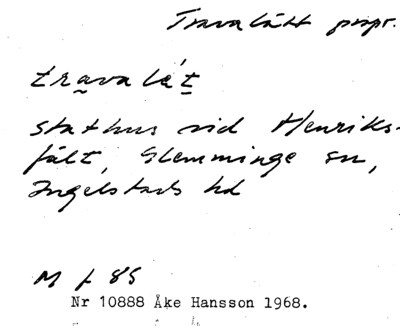 Travalätt prop.
travalä́t
stathus vid Henriks-
fält, Glemminge sn,
Ingelstads hd
M f 85
Nr 10888 Åke Hansson 1968.